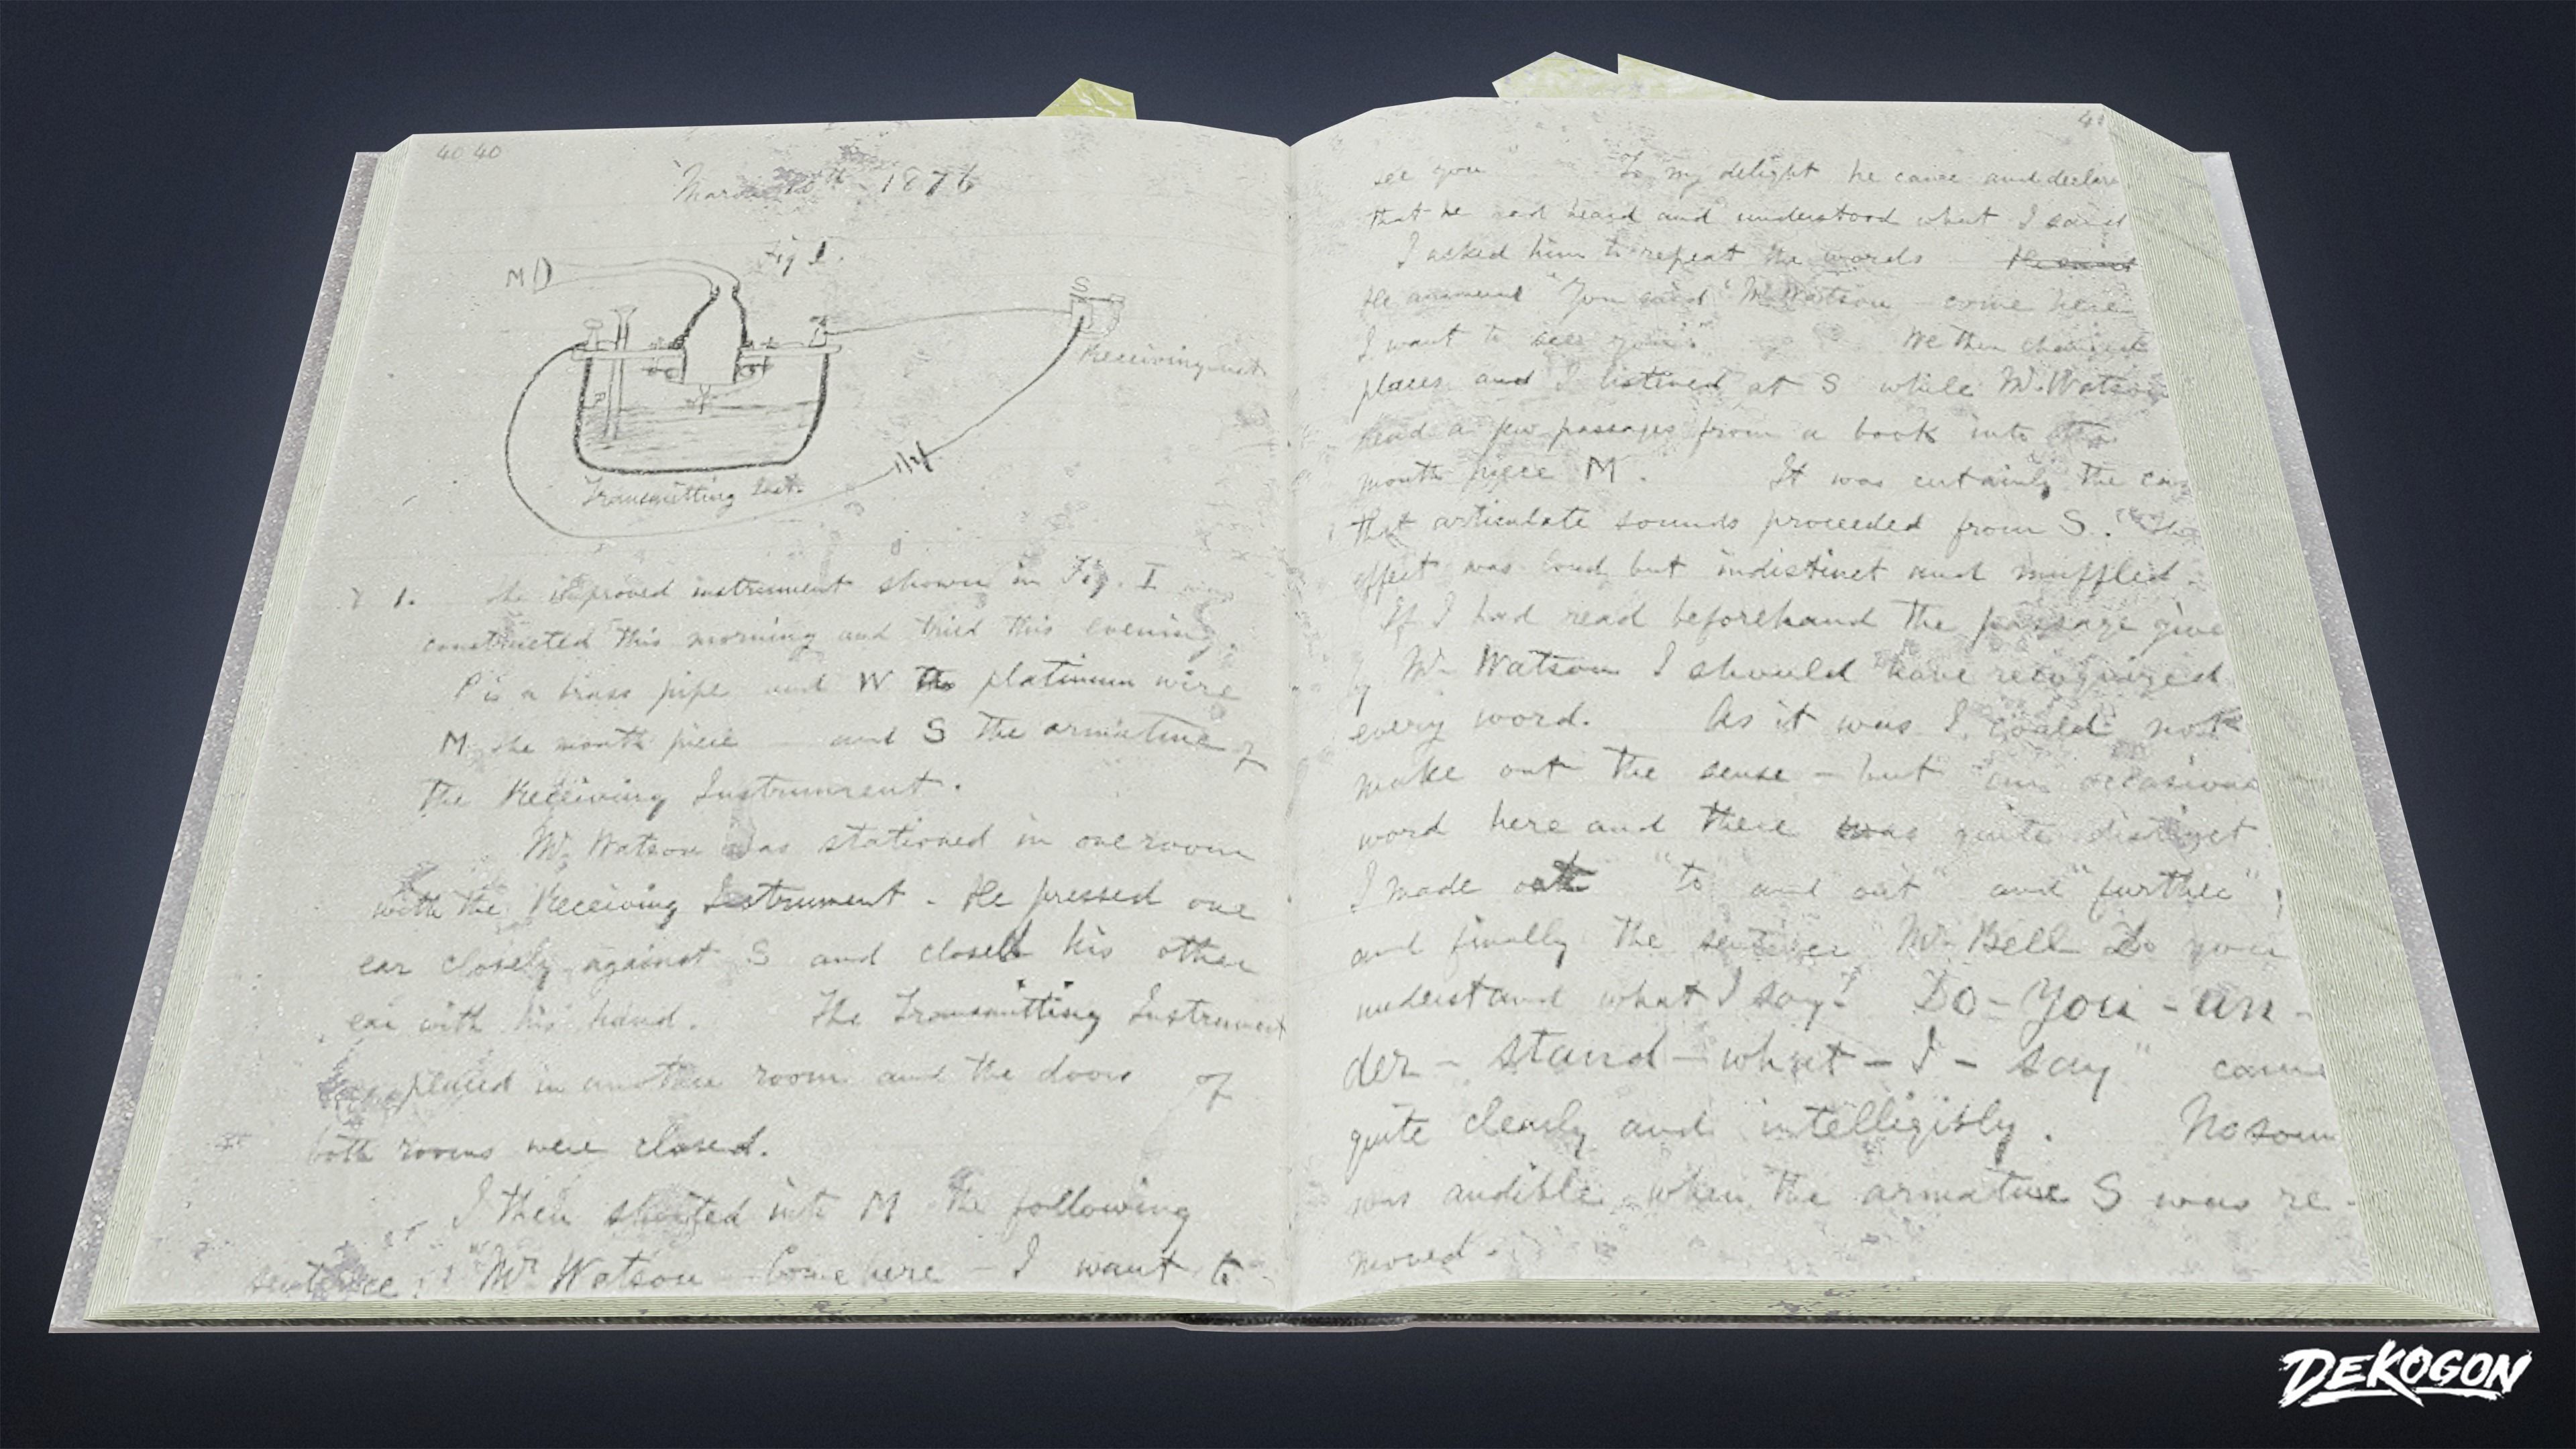 40 40
March 10th 1876
Fig 1.
M
S
Receiving Inst
P
Transmitting Inst.
1. The improved instrument shown in Fig. I was
constructed this morning and tried this evening.
P is a brass pipe and W the platinum wire
M the mouth piece — and S the armature of
the Receiving Instrument.
Mr. Watson was stationed in one room
with the Receiving Instrument - He pressed one
ear closely against S and closed his other
ear with his hand. The Transmitting Instrument
placed in another room and the doors of
both rooms were closed.
I then shouted into M the following
sentence: "Mr Watson - Come here - I want to
41
see you" To my delight he came and declare
that he had heard and understood what I said
I asked him to repeat the words
He answered "You said "Mr Watson - come here
I want to see you"" We then changed
places and I listened at S while Mr. Watson
read a few passages from a book into the
mouth piece M. It was certainly the cas
that articulate sounds proceeded from S. The
effect was loud but indistinct and muffled.
If I had read beforehand the passage give
by Mr Watson I should have recognized
every word. As it was I could not
make out the sense - but an occasiona
word here and there was quite distinct
I made out "to" and "out" and "further";
and finally the sentence "Mr Bell Do you
understand what I say? Do-You-un-
der-stand-what-I-say" came
quite clearly and intelligibly. No soun
was audible when the armature S was re-
moved.
DEKOGON